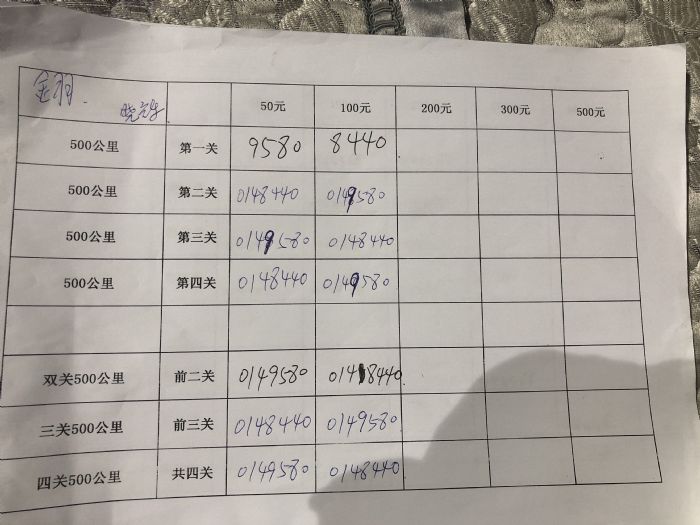 金羽
50元 100元 200元 300元 500元
500公里 第一关 9580 8440
500公里 第二关 0148440 0149580
500公里 第三关 0149580 0148440
500公里 第四关 0148440 0149580
双关500公里 前二关 0149580 0148440
三关500公里 前三关 0148440 0149580
四关500公里 共四关 0149580 0148440